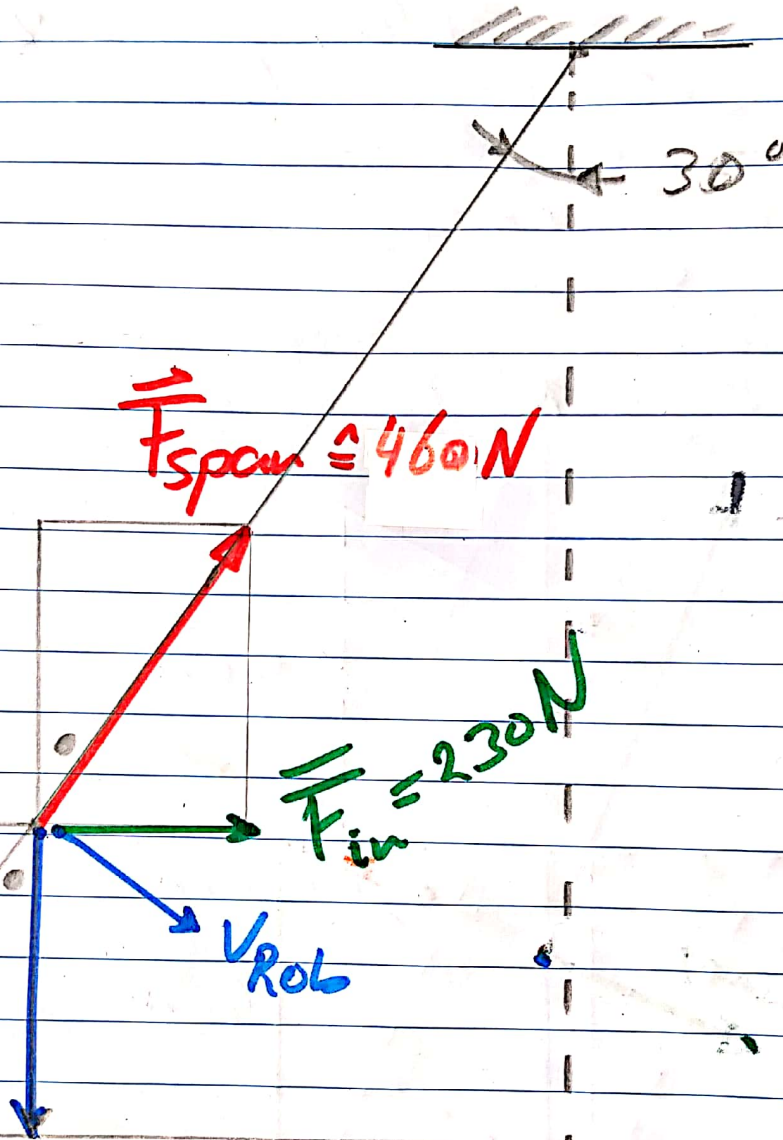 30°
F⃗span ≙ 460 N
F̅in = 230 N
VRob